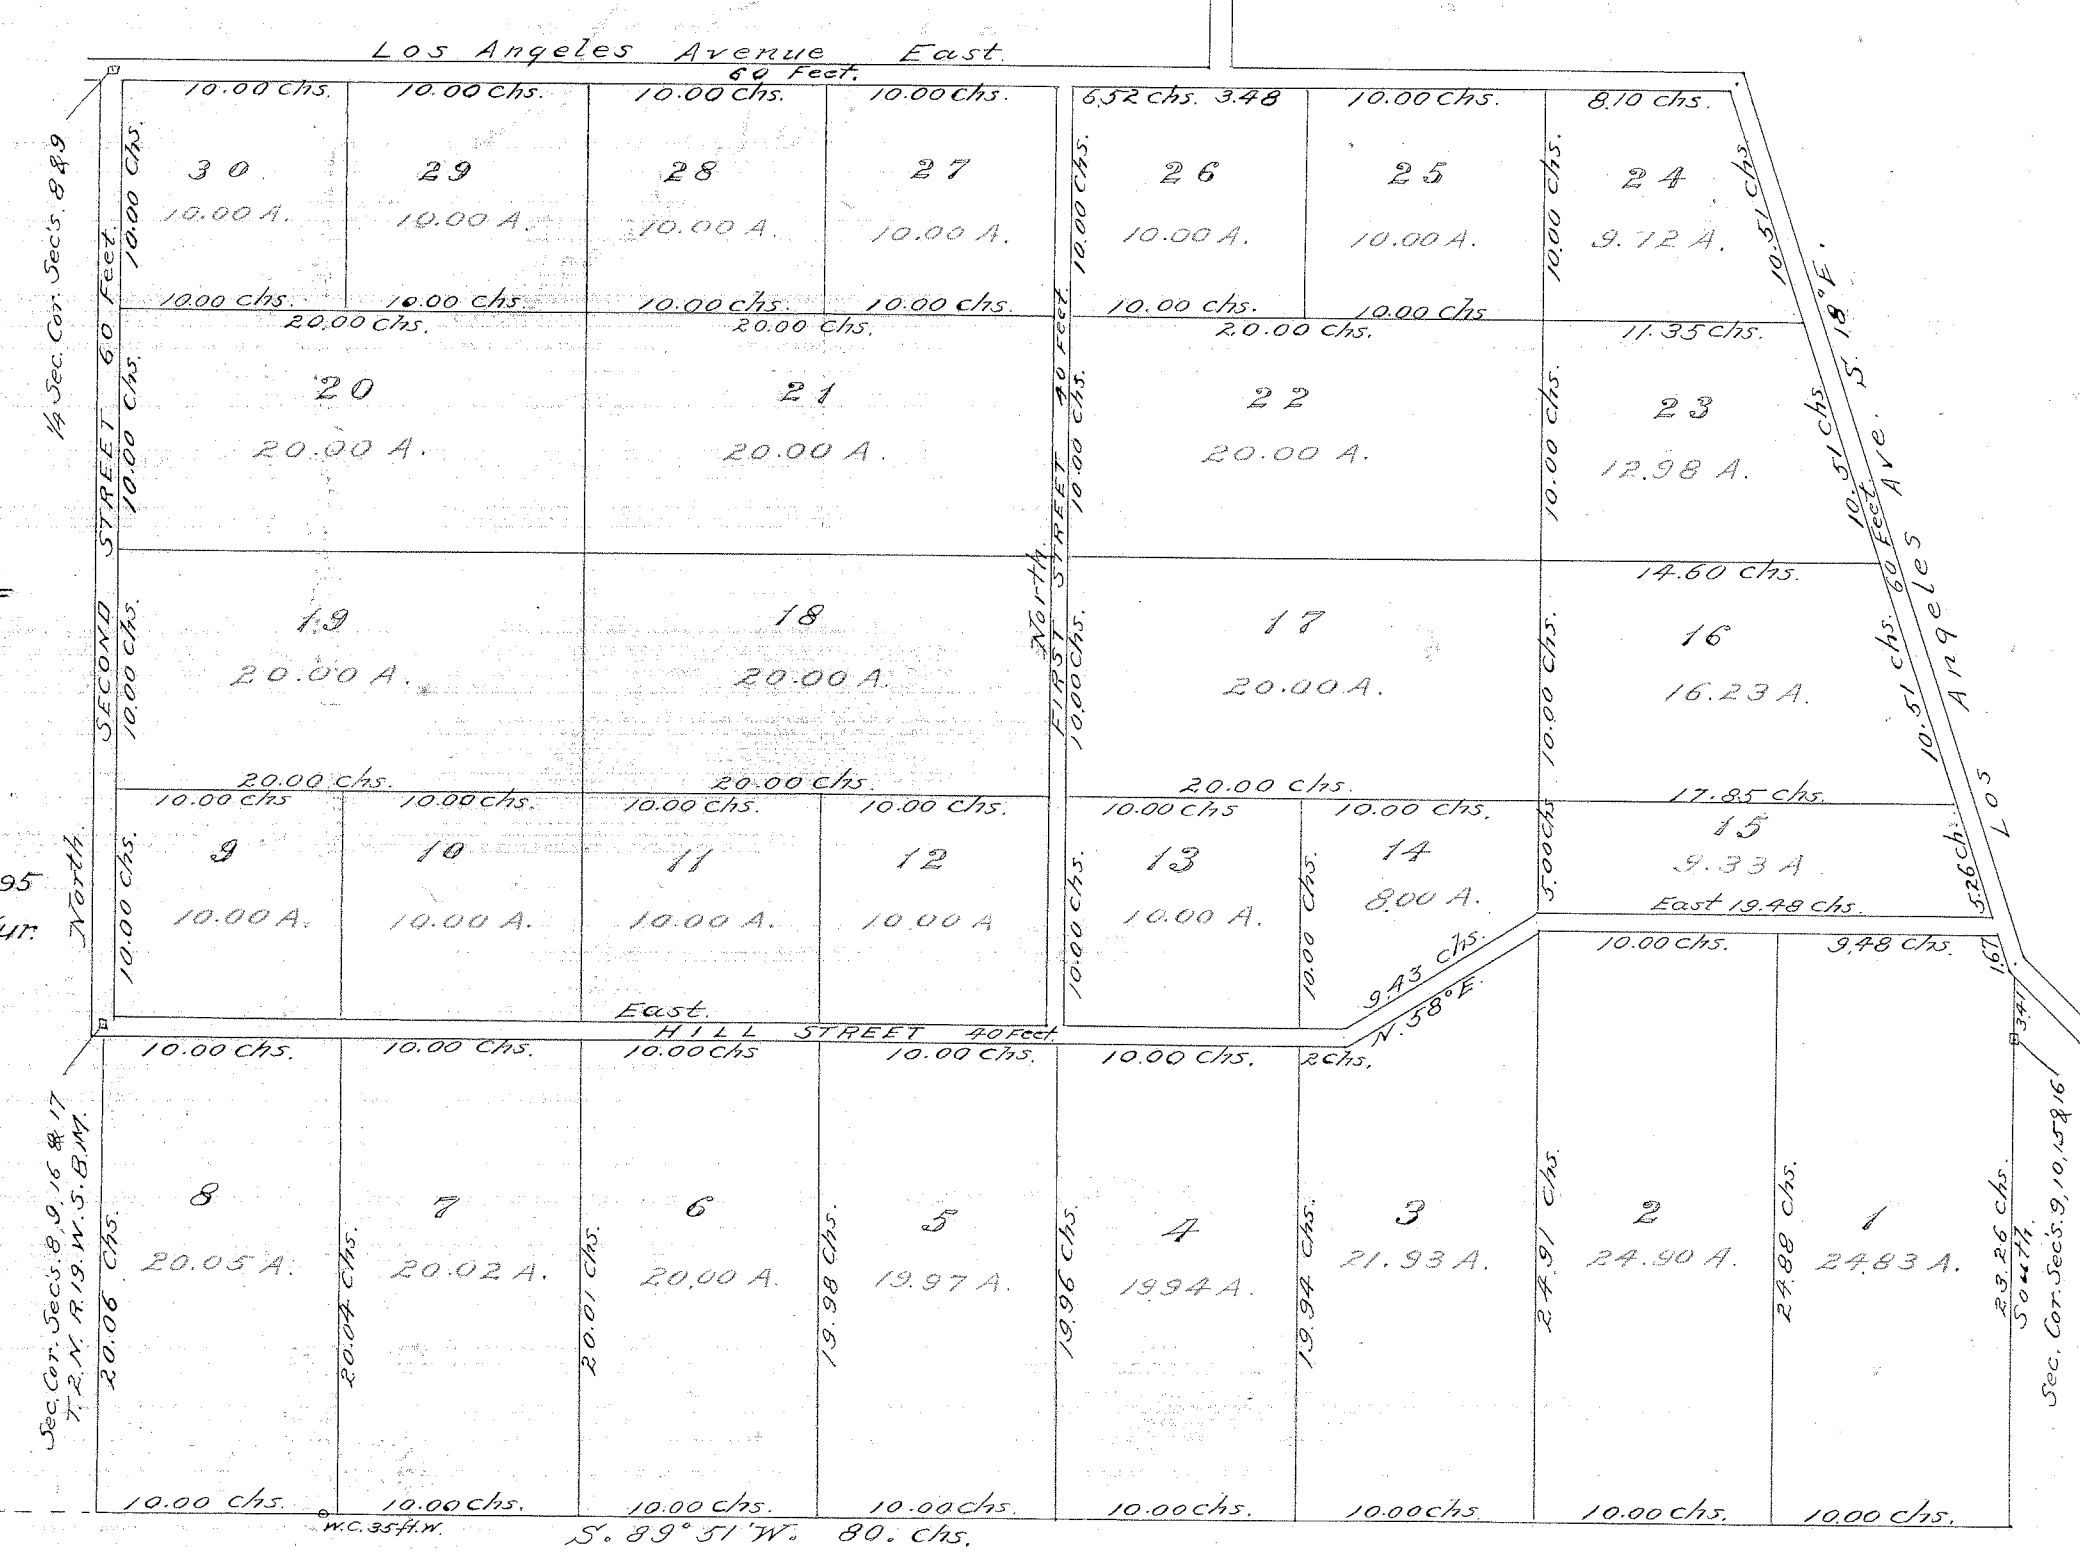 Los Angeles Avenue East.
60 Feet.
10.00 Chs. 10.00 Chs. 10.00 Chs. 10.00 Chs. 6.52 Chs. 3.48 10.00 Chs. 8.10 Chs.
1/4 Sec. Cor. Sec's. 8 & 9
SECOND STREET 60 Feet.
North.
10.00 Chs.
30
10.00 A.
29
10.00 A.
28
10.00 A.
27
10.00 A.
10.00 Chs.
26
10.00 A.
25
10.00 A.
10.00 Chs.
24
9.72 A.
10.51 Chs.
10.00 Chs. 10.00 Chs. 10.00 Chs. 10.00 Chs. 10.00 Chs. 10.00 Chs
20.00 Chs. 20.00 Chs. 20.00 Chs. 11.35 Chs.
10.00 Chs.
20
20.00 A.
21
20.00 A.
FIRST STREET 40 Feet.
North.
10.00 Chs.
22
20.00 A.
10.00 Chs.
23
12.98 A.
10.51 Chs.
60 Feet.
Los Angeles Ave. S. 18° E.
14.60 Chs.
10.00 Chs.
19
20.00 A.
18
20.00 A.
10.00 Chs.
17
20.00 A.
10.00 Chs.
16
16.23 A.
10.51 Chs.
20.00 Chs. 20.00 Chs. 20.00 Chs. 17.85 Chs.
10.00 Chs 10.00 Chs. 10.00 Chs. 10.00 Chs. 10.00 Chs 10.00 Chs.
95
ur.
10.00 Chs.
9
10.00 A.
10
10.00 A.
11
10.00 A.
12
10.00 A
10.00 Chs.
13
10.00 A.
10.00 Chs.
14
8.00 A.
5.00 Chs
15
9.33 A.
5.26 Ch.
East 19.48 Chs.
9.43 Chs.
N. 58° E.
East.
HILL STREET 40 Feet.
10.00 Chs. 10.00 Chs. 10.00 Chs 10.00 Chs. 10.00 Chs. 2 Chs.
10.00 Chs. 9.48 Chs.
1.67
3.41
Sec. Cor. Sec's. 8, 9, 16 & 17
T. 2. N. R. 19. W. S. B. M.
20.06 Chs.
8
20.05 A.
20.04 Chs.
7
20.02 A.
20.01 Chs.
6
20.00 A.
19.98 Chs.
5
19.97 A.
19.96 Chs.
4
19.94 A.
19.94 Chs.
3
21.93 A.
24.91 Chs.
2
24.90 A.
24.88 Chs.
1
24.83 A.
23.26 Chs.
South.
Sec. Cor. Sec's. 9, 10, 15 & 16
10.00 Chs. 10.00 Chs. 10.00 Chs. 10.00 Chs. 10.00 Chs. 10.00 Chs. 10.00 Chs. 10.00 Chs.
W.C. 35 ft. W.
S. 89° 51' W. 80. Chs.